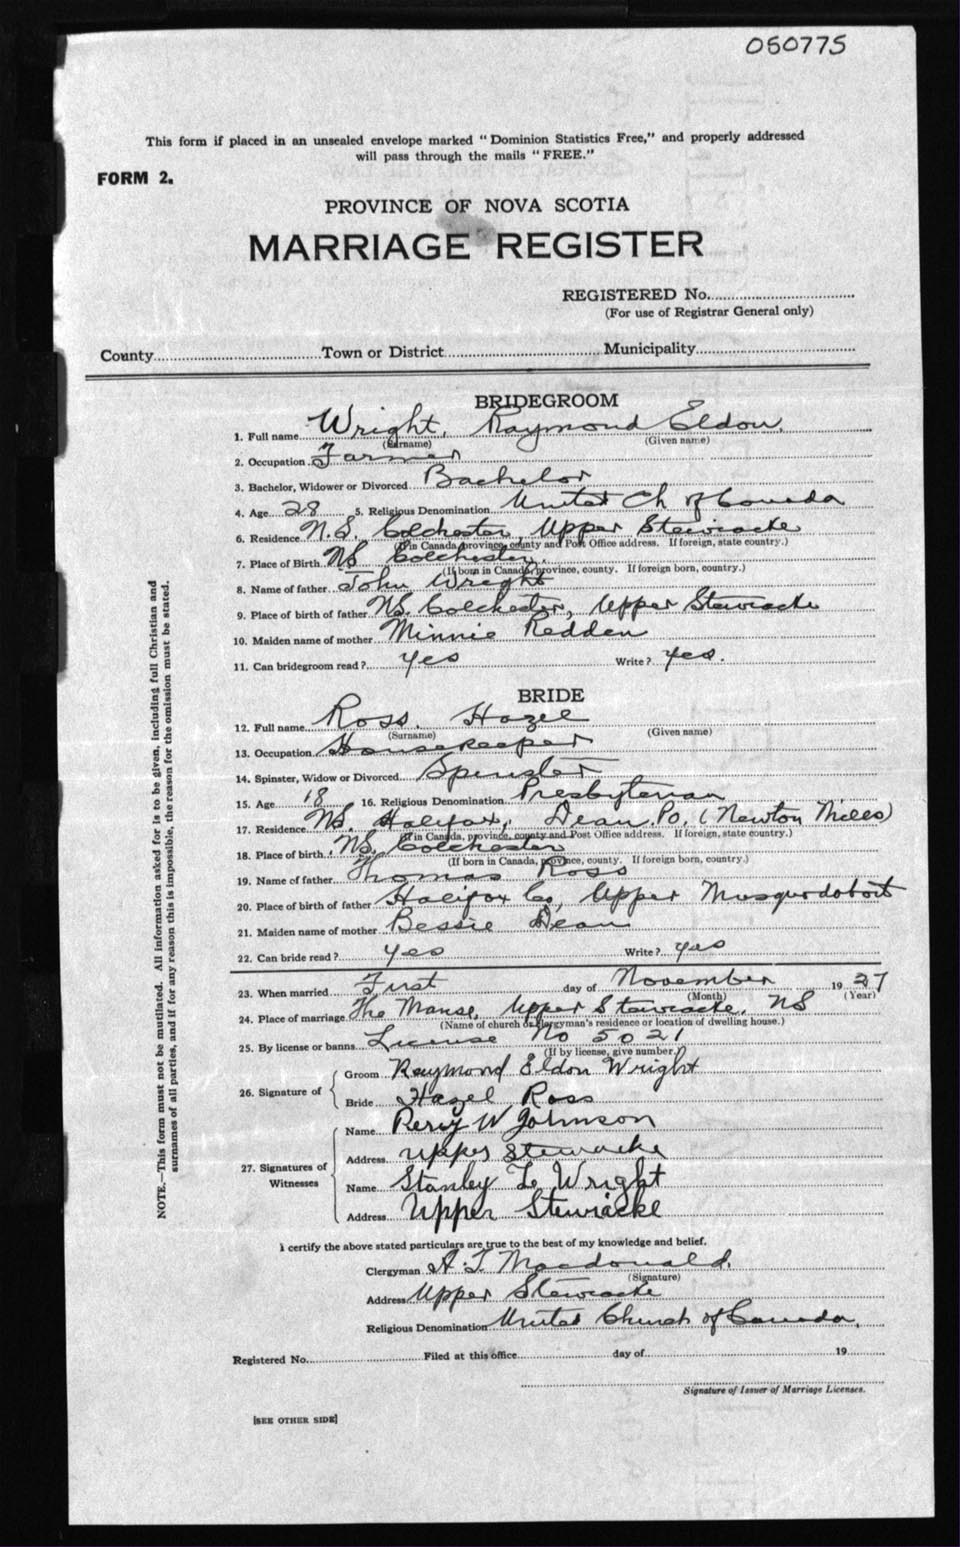 050775
This form if placed in an unsealed envelope marked "Dominion Statistics Free," and properly addressed
will pass through the mails "FREE."
FORM 2.
PROVINCE OF NOVA SCOTIA
MARRIAGE REGISTER
REGISTERED No.
(For use of Registrar General only)
County Town or District Municipality
BRIDEGROOM
1. Full name Wright, Raymond Eldon.
(Surname) (Given name)
2. Occupation Farmer
3. Bachelor, Widower or Divorced Bachelor
4. Age 28 5. Religious Denomination United Ch of Canada
6. Residence N.S. Colchester, Upper Stewiacke
(If in Canada, province, county and Post Office address. If foreign, state country.)
7. Place of Birth NS Colchester,
(If born in Canada, province, county. If foreign born, country.)
8. Name of father John Wright
9. Place of birth of father NS. Colchester, Upper Stewiacke
10. Maiden name of mother Minnie Redden
11. Can bridegroom read? yes Write? yes.
BRIDE
12. Full name Ross. Hazel
(Surname) (Given name)
13. Occupation Housekeeper
14. Spinster, Widow or Divorced Spinster
15. Age 18 16. Religious Denomination Presbyterian
17. Residence NS. Halifax, Dean. Po. (Newton Mills)
(If in Canada, province, county and Post Office address. If foreign, state country.)
18. Place of birth NS, Colchester
(If born in Canada, province, county. If foreign born, country.)
19. Name of father Thomas Ross
20. Place of birth of father Halifax Co, Upper Musquodoboit
21. Maiden name of mother Bessie Dean
22. Can bride read? yes Write? yes
23. When married First day of November 1927
(Month) (Year)
24. Place of marriage The Manse, Upper Stewiacke, NS
(Name of church or clergyman's residence or location of dwelling house.)
25. By license or banns License No 5021
(If by license, give number.)
26. Signature of
Groom Raymond Eldon Wright
Bride Hazel Ross
27. Signatures of Witnesses
Name Percy W Johnson
Address Upper Stewiacke
Name Stanley L. Wright
Address Upper Stewiacke
I certify the above stated particulars are true to the best of my knowledge and belief.
Clergyman A. T. Macdonald.
(Signature)
Address Upper Stewiacke
Religious Denomination United Church of Canada.
Registered No. Filed at this office day of 19
Signature of Issuer of Marriage Licenses.
[SEE OTHER SIDE]
NOTE.—This form must not be mutilated. All information asked for is to be given, including full Christian and
surnames of all parties, and if for any reason this is impossible, the reason for the omission must be stated.